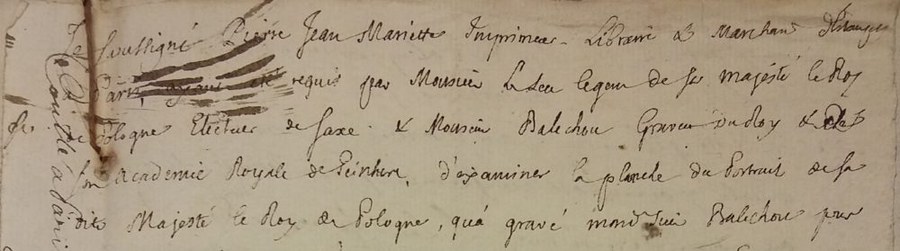 Je soussigné Pierre Jean Mariette Imprimeur Libraire & Marchand d'Estampes
Paris, ayant été requis par Monsieur Le Leu de sa majésté le Roy
de Pologne Electeur de Saxe & Monsieur Balechou Graveur du Roy & de
son academie Royale de Peinture, d'éxaminer la planche du Portrait de sa
dite Majesté le Roy de Pologne, qu'a gravé mondt Sieur Balechou pour